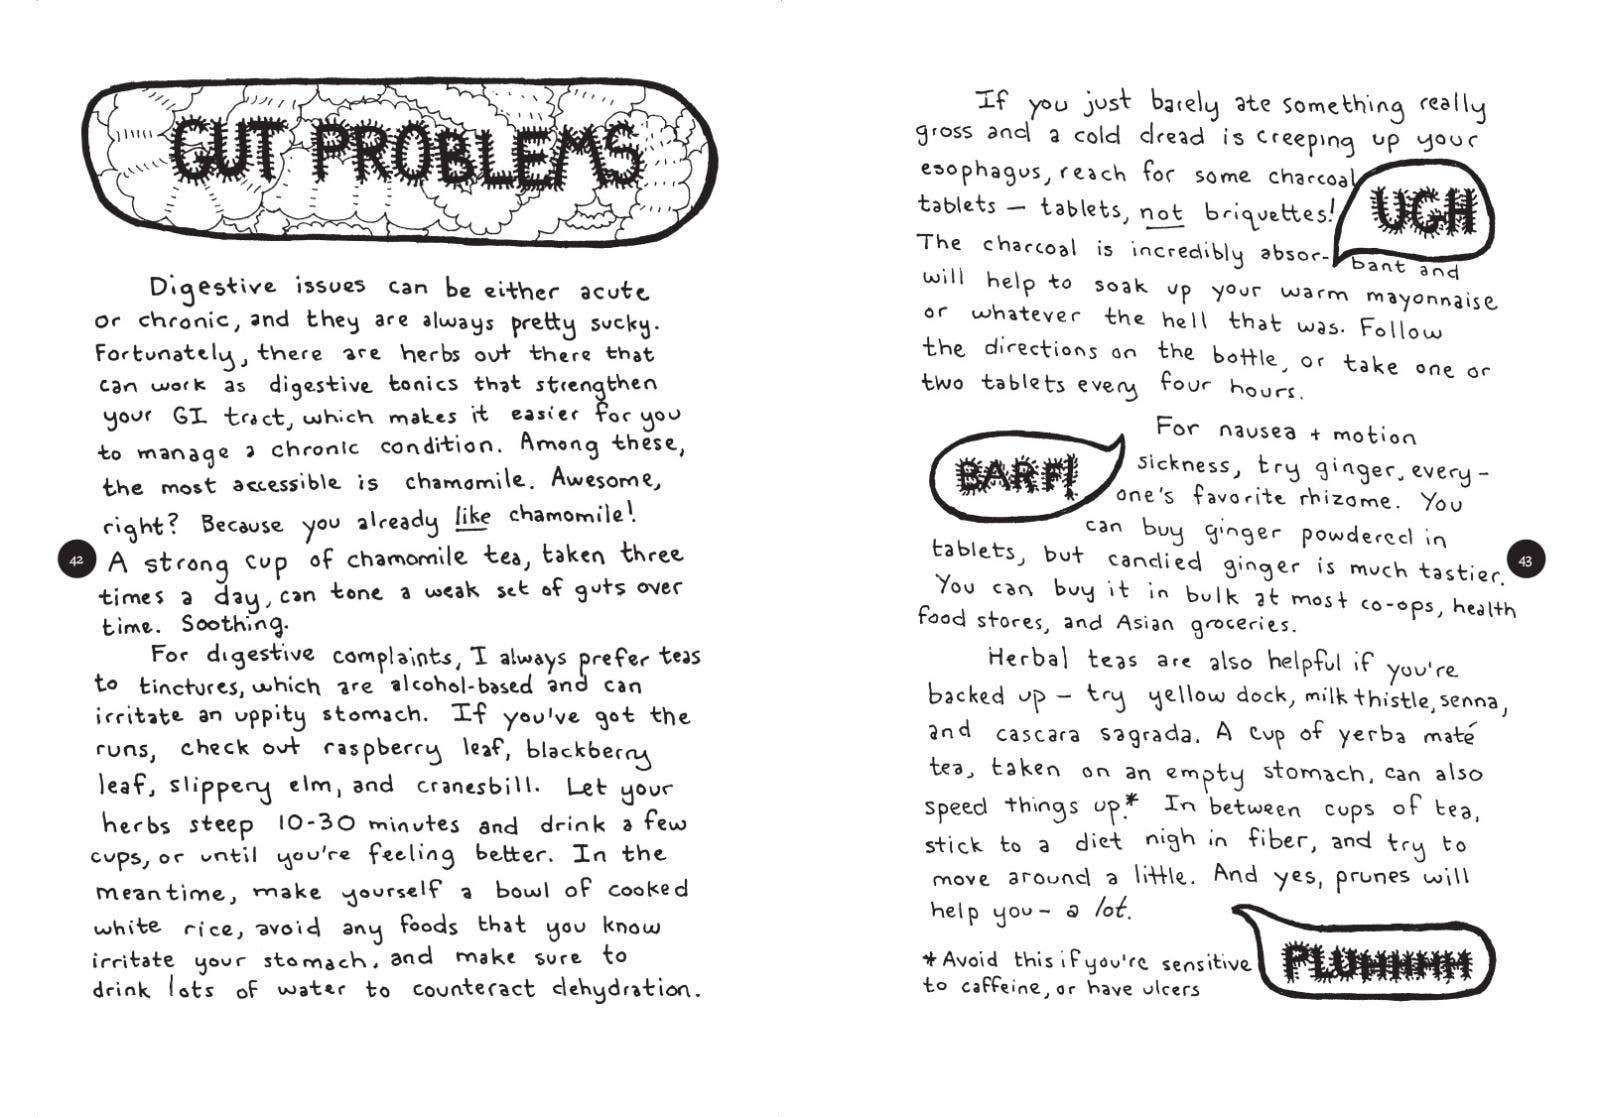 GUT PROBLEMS
Digestive issues can be either acute
or chronic, and they are always pretty sucky.
Fortunately, there are herbs out there that
can work as digestive tonics that strengthen
your GI tract, which makes it easier for you
to manage a chronic condition. Among these,
the most accessible is chamomile. Awesome,
right? Because you already like chamomile!
A strong cup of chamomile tea, taken three
times a day, can tone a weak set of guts over
time. Soothing.
For digestive complaints, I always prefer teas
to tinctures, which are alcohol-based and can
irritate an uppity stomach. If you've got the
runs, check out raspberry leaf, blackberry
leaf, slippery elm, and cranesbill. Let your
herbs steep 10-30 minutes and drink a few
cups, or until you're feeling better. In the
meantime, make yourself a bowl of cooked
white rice, avoid any foods that you know
irritate your stomach, and make sure to
drink lots of water to counteract dehydration.
42
If you just barely ate something really
gross and a cold dread is creeping up your
esophagus, reach for some charcoal
tablets — tablets, not briquettes!
UGH
The charcoal is incredibly absor-bant and
will help to soak up your warm mayonnaise
or whatever the hell that was. Follow
the directions on the bottle, or take one or
two tablets every four hours.
For nausea + motion
BARF!
sickness, try ginger, every-
one's favorite rhizome. You
can buy ginger powdered in
tablets, but candied ginger is much tastier.
You can buy it in bulk at most co-ops, health
food stores, and Asian groceries.
43
Herbal teas are also helpful if you're
backed up — try yellow dock, milk thistle, senna,
and cascara sagrada. A cup of yerba maté
tea, taken on an empty stomach, can also
speed things up.* In between cups of tea,
stick to a diet nigh in fiber, and try to
move around a little. And yes, prunes will
help you - a lot.
*Avoid this if you're sensitive
to caffeine, or have ulcers
PLUHHMM